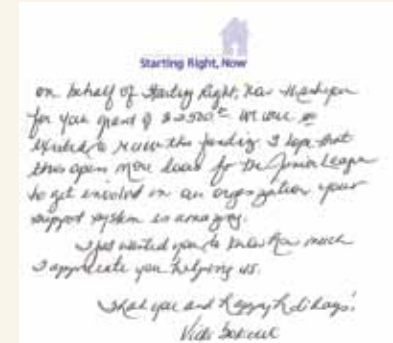 Starting Right, Now
on behalf of Starting Right, Now thank you
for your grant of $2500 we were so
excited to receive this funding. I hope that
this opens more doors for the Junior League
to get involved in our organization your
support system is amazing.
I just wanted you to know how much
I appreciate you helping us.
Thank you and Happy Holidays!
Vicki